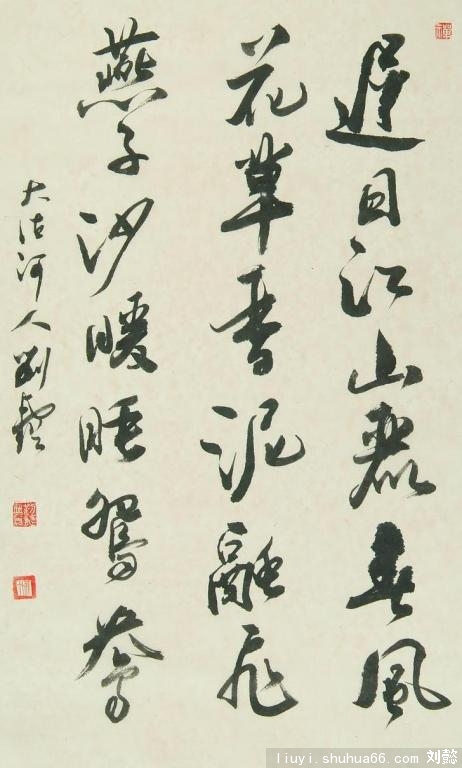 遲日江山麗春風
花草香泥融飛
燕子沙暖睡鴛鴦
大沽河人劉懿
liuyi.shuhua66.com 刘懿